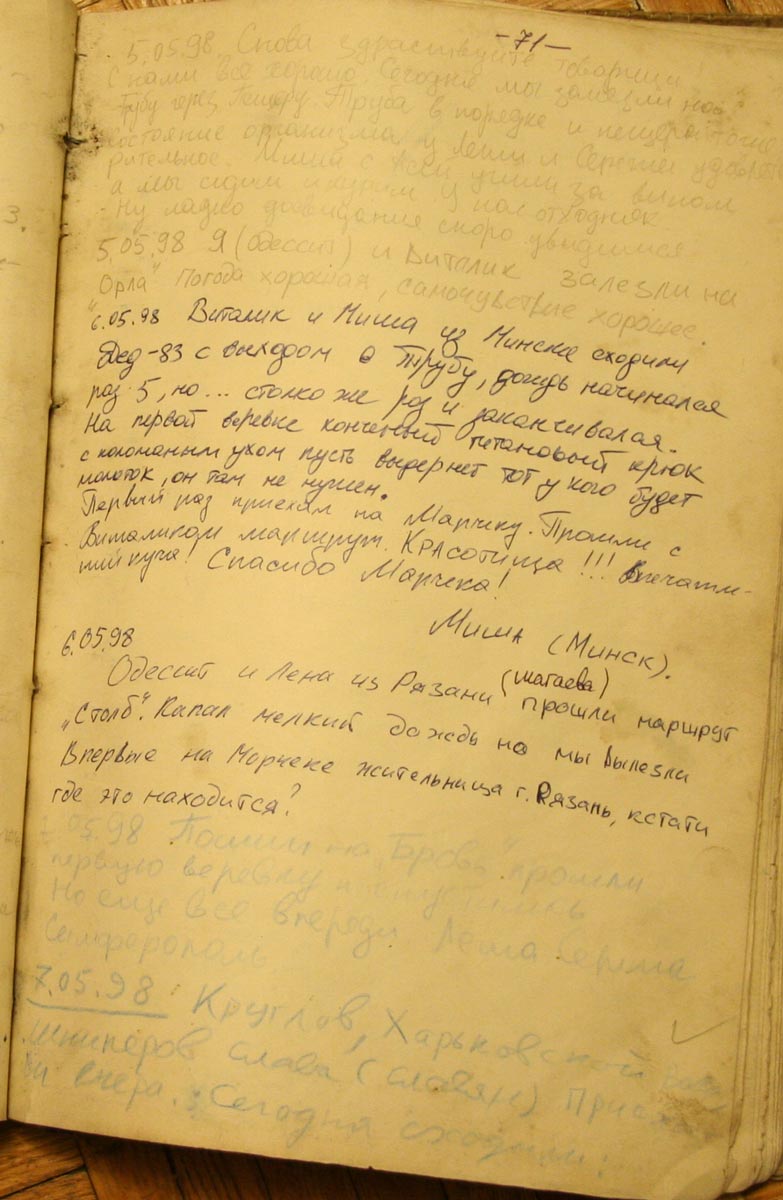 -71-
5.05.98 Снова здраствуйте товарищи!
С нами все хорошо. Сегодня мы залезли на
Трубу через Пещеру. Труба в порядке и пещера тоже
состояние организма у Леши и Сережи удовлет
рительное. Миша с Асей ушли за вином
а мы сидим и курим у нас отходняк
Ну ладно досвидания скоро увидимся
5.05.98 Я (Одессит) и Виталик залезли на
"Орла" Погода хорошая, самочувствие хорошее.
6.05.98 Виталик и Миша из Минска сходили
Дед-83 с выходом в Трубу, дождь начинался
раз 5, но... столко же раз и заканчивался.
На первой веревке конченый титановый крюк
с коломанным ухом пусть выдернет тот у кого будет
молоток, он там не нужен.
Первый раз приехал на Марчику. Прошли с
Виталиком маршрут. КРАСОТИЩА!!! Впечатле-
ний куча! Спасибо Марчека!
Миша (Минск).
6.05.98
Одессит и Лена из Рязани (Шагаева) прошли маршрут
„Столб". Капал мелкий дождь но мы вылезли
Впервые на Морчеке жительница г. Рязань, кстати
где это находится?
7.05.98 Пошли на „Бровь" прошли
первую веревку и спустились
Но еще все впереди Леша Сережа
Симферополь
7.05.98 Круглов, Харьковской
Шниперов Слава (Славян) Приеха
ли вчера. Сегодня сходили: